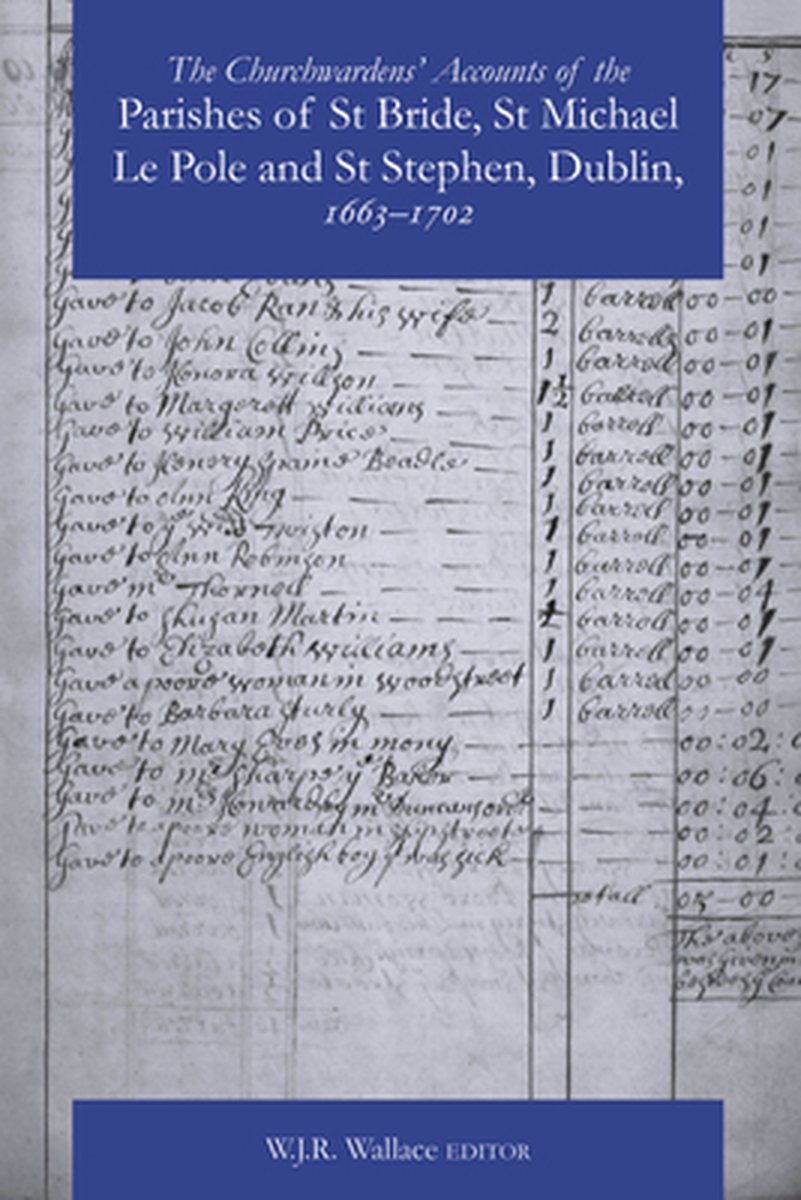 The Churchwardens' Accounts of the
Parishes of St Bride, St Michael
Le Pole and St Stephen, Dublin,
1663–1702
17
07
01
01
01
01
Gave to Jacob Ran & his wife 1 barrell 00-00
Gave to John Collins 2 barrells 00-01
Gave to Honora Willson 1 barrell 00-01
Gave to Margerett Williams 1½ barrell 00-01
Gave to William Brice 1 barrell 00-01
Gave to Henery Beadle 1 barrell 00-01
Gave to Ann King 1 barrell 00-01
Gave to 1 barrell 00-01
Gave to Ann Robinson 1 barrell 00-01
Gave mr 1 barrell 00-04
Gave to Shuzan Martin barrell 00-01
Gave to Elizabeth Williams 1 barrell 00-01
Gave a poore woman in Woodstreet 1 barrell 00-00
Gave to Barbara 1 barrell 00-00
Gave to Mary in mony 00:02:
Gave to mr Sharpe ye Baker 00:06:
Gave to by mr 00:04:
Gave to a poore woman in 00:02:
Gave to a poore English boy yt was sick 00:01:
05-00
The above
was given
W.J.R. Wallace EDITOR